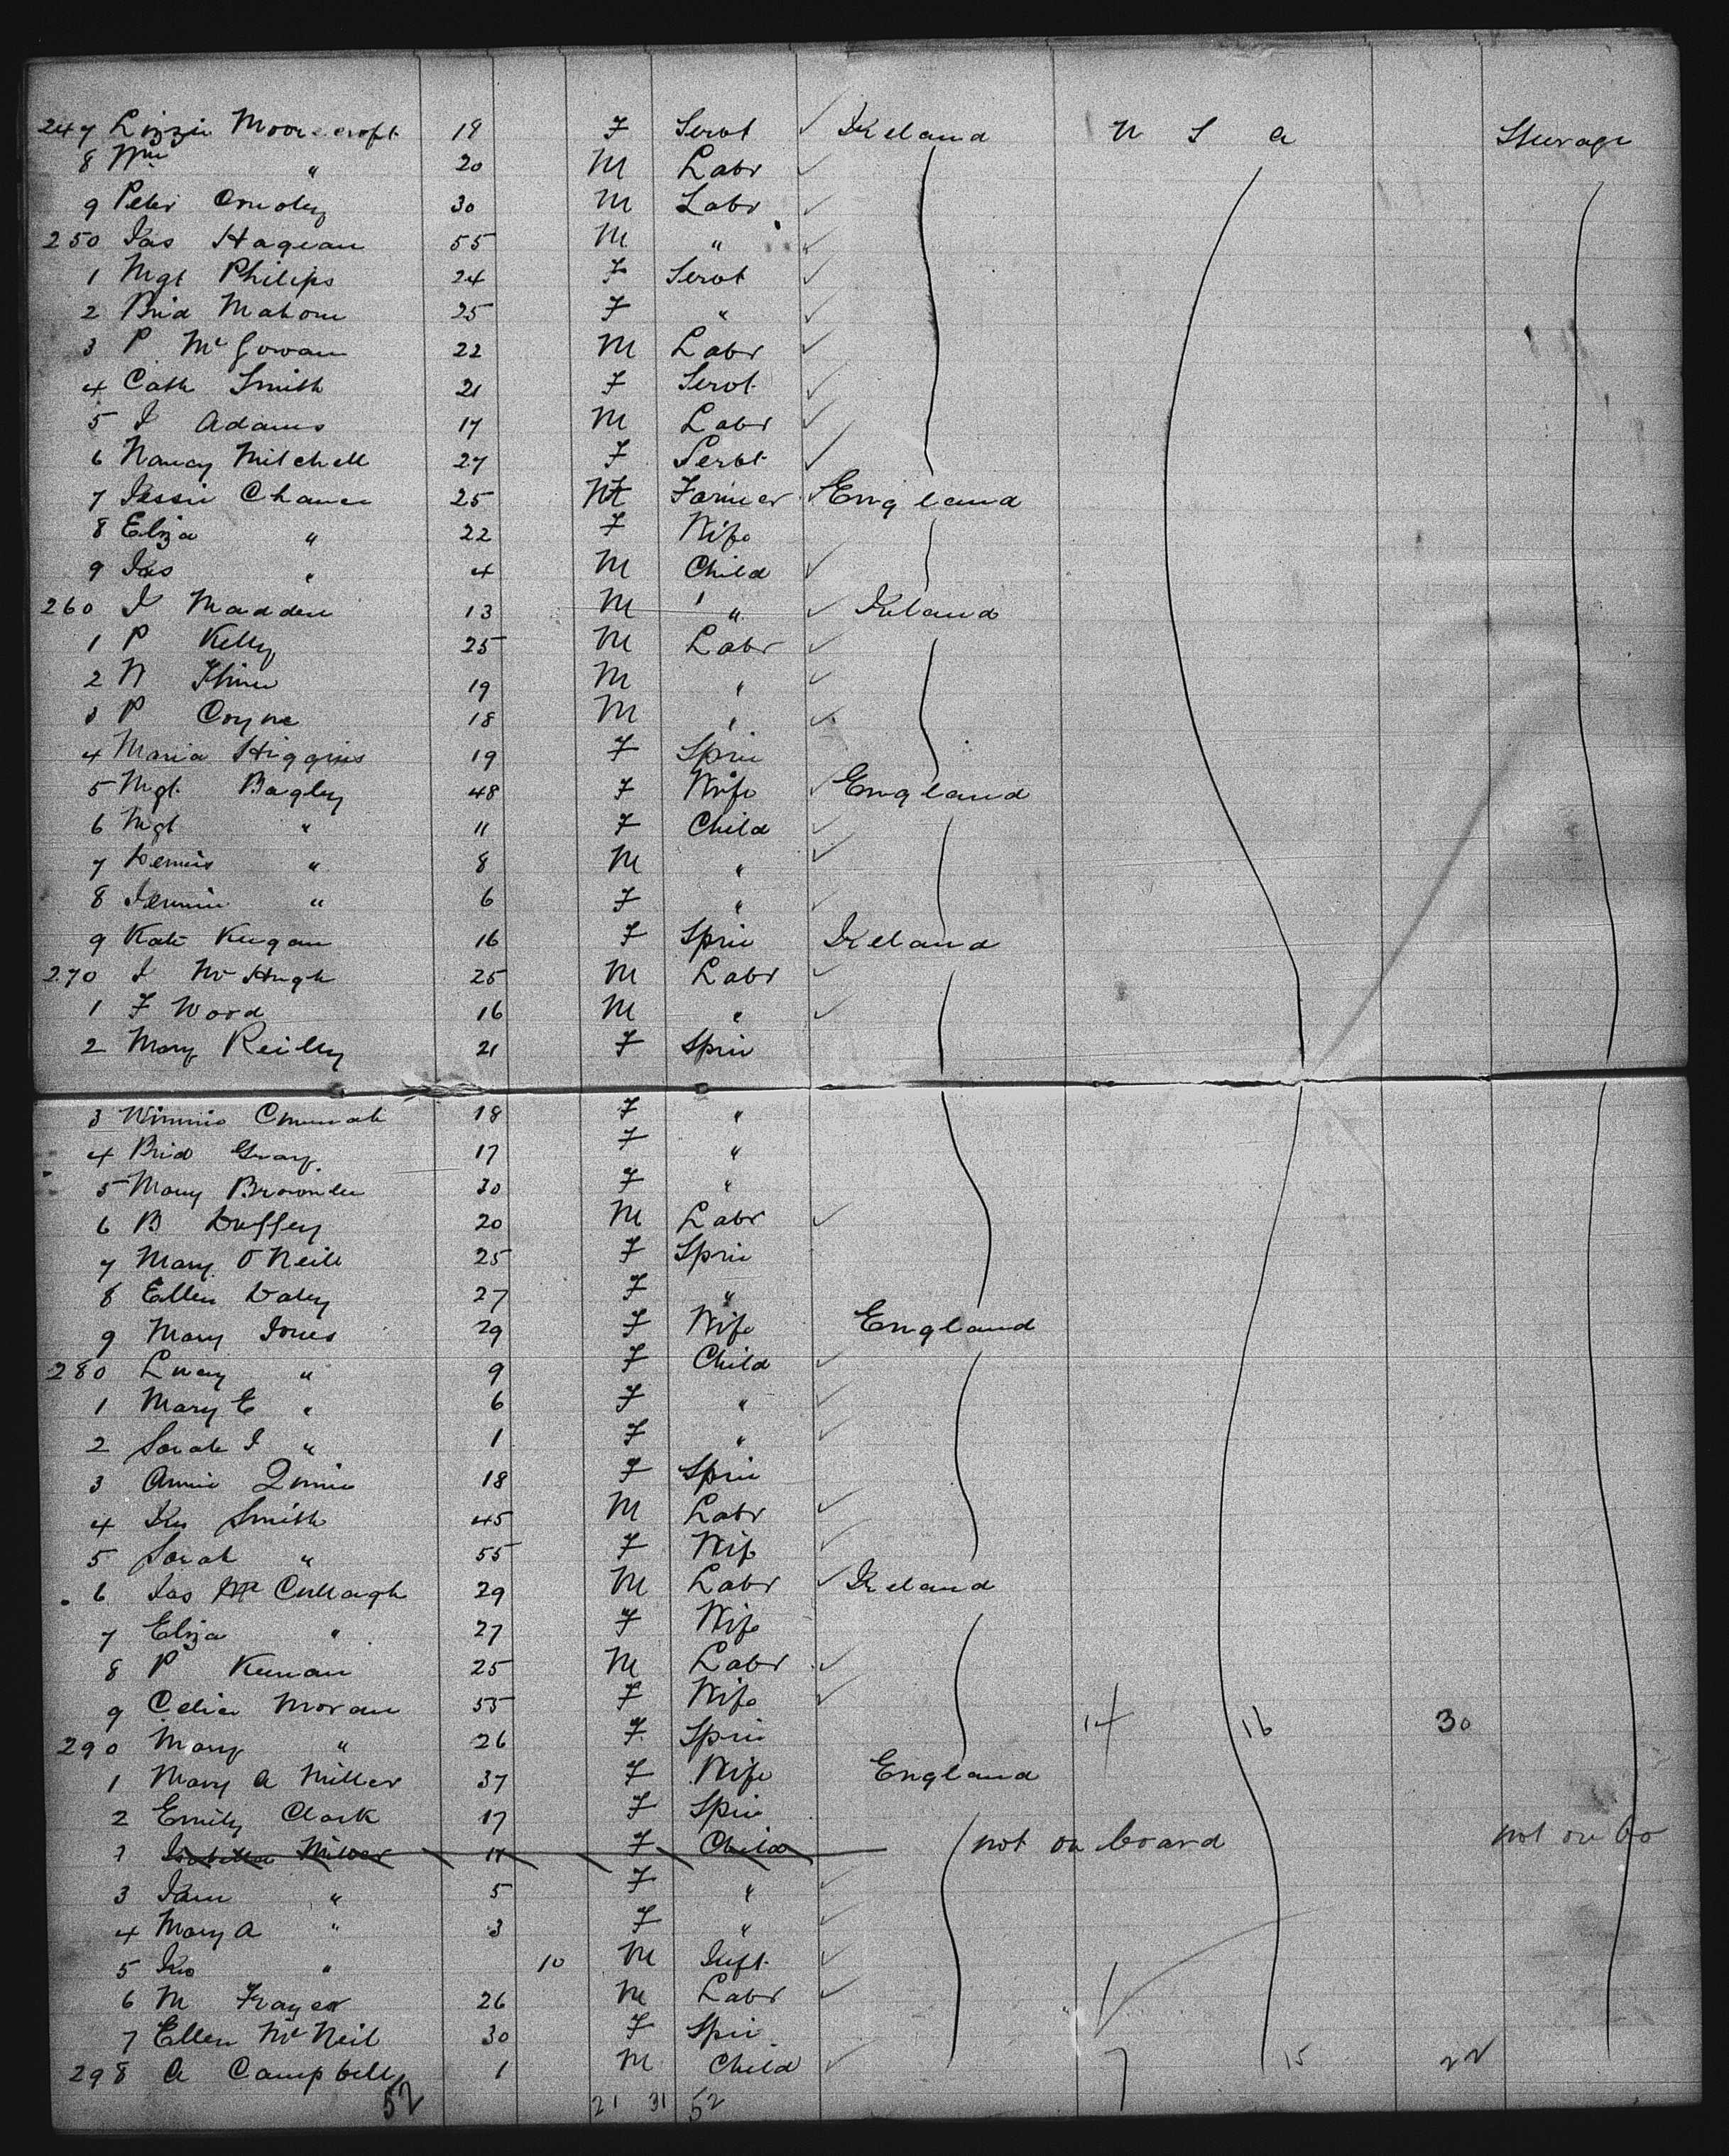 247 Lizzie Moorecroft 19 F Servt ✓ Ireland U S A Steerage
8 Wm " 20 M Labr ✓
9 Peter 30 M Labr ✓
250 Jas Hagean 55 M " ✓
1 Mgt Philips 24 F Servt ✓
2 Brid Mahon 25 F " ✓
3 P McGowan 22 M Labr ✓
4 Cath Smith 21 F Servt ✓
5 J Adams 17 M Labr ✓
6 Nancy Mitchell 27 F Servt ✓
7 Jessie Chance 25 M Farmer ✓ England
8 Eliza " 22 F Wife
9 Jas " 4 M Child ✓
260 J Madden 13 M " ✓ Ireland
1 P Kelly 25 M Labr ✓
2 19 M " ✓
3 P Coyne 18 M " ✓
4 Maria Higgins 19 F Spin
5 Mgt Bagley 48 F Wife ✓ England
6 Mgt " 11 F Child ✓
7 Dennis " 8 M " ✓
8 Jennie " 6 F " ✓
9 Kate Keegan 16 F Spin Ireland
270 J McHugh 25 M Labr ✓
1 F Wood 16 M " ✓
2 Mary Reilly 21 F Spin
3 Winnie 18 F "
4 Brid Gray 17 F "
5 Mary 30 F "
6 B Duffey 20 M Labr ✓
7 Mary O Neill 25 F Spin
8 Ellen Daley 27 F "
9 Mary Jones 29 F Wife England
280 Lucy " 9 F Child ✓
1 Mary E " 6 F " ✓
2 Sarah J " 1 F " ✓
3 Annie Quinn 18 F Spin
4 Jno Smith 45 M Labr ✓
5 Sarah " 55 F Wife ✓
6 Jas McCullagh 29 M Labr ✓ Ireland
7 Eliza " 27 F Wife
8 P Keenan 25 M Labr ✓
9 Celia Moran 55 F Wife ✓
290 Mary " 26 F Spin 14 16 30
1 Mary A Miller 37 F Wife England
2 Emily Clark 17 F Spin
3 Isabella Miller 11 F Child not on board not on bo
3 Jane " 5 F " ✓
4 Mary A " 3 F " ✓
5 Jno " 10 M Inft ✓
6 M 26 M Labr ✓
7 Ellen McNeil 30 F Spin
298 A Campbell 1 M Child ✓ 7 15 22
52 21 31 52